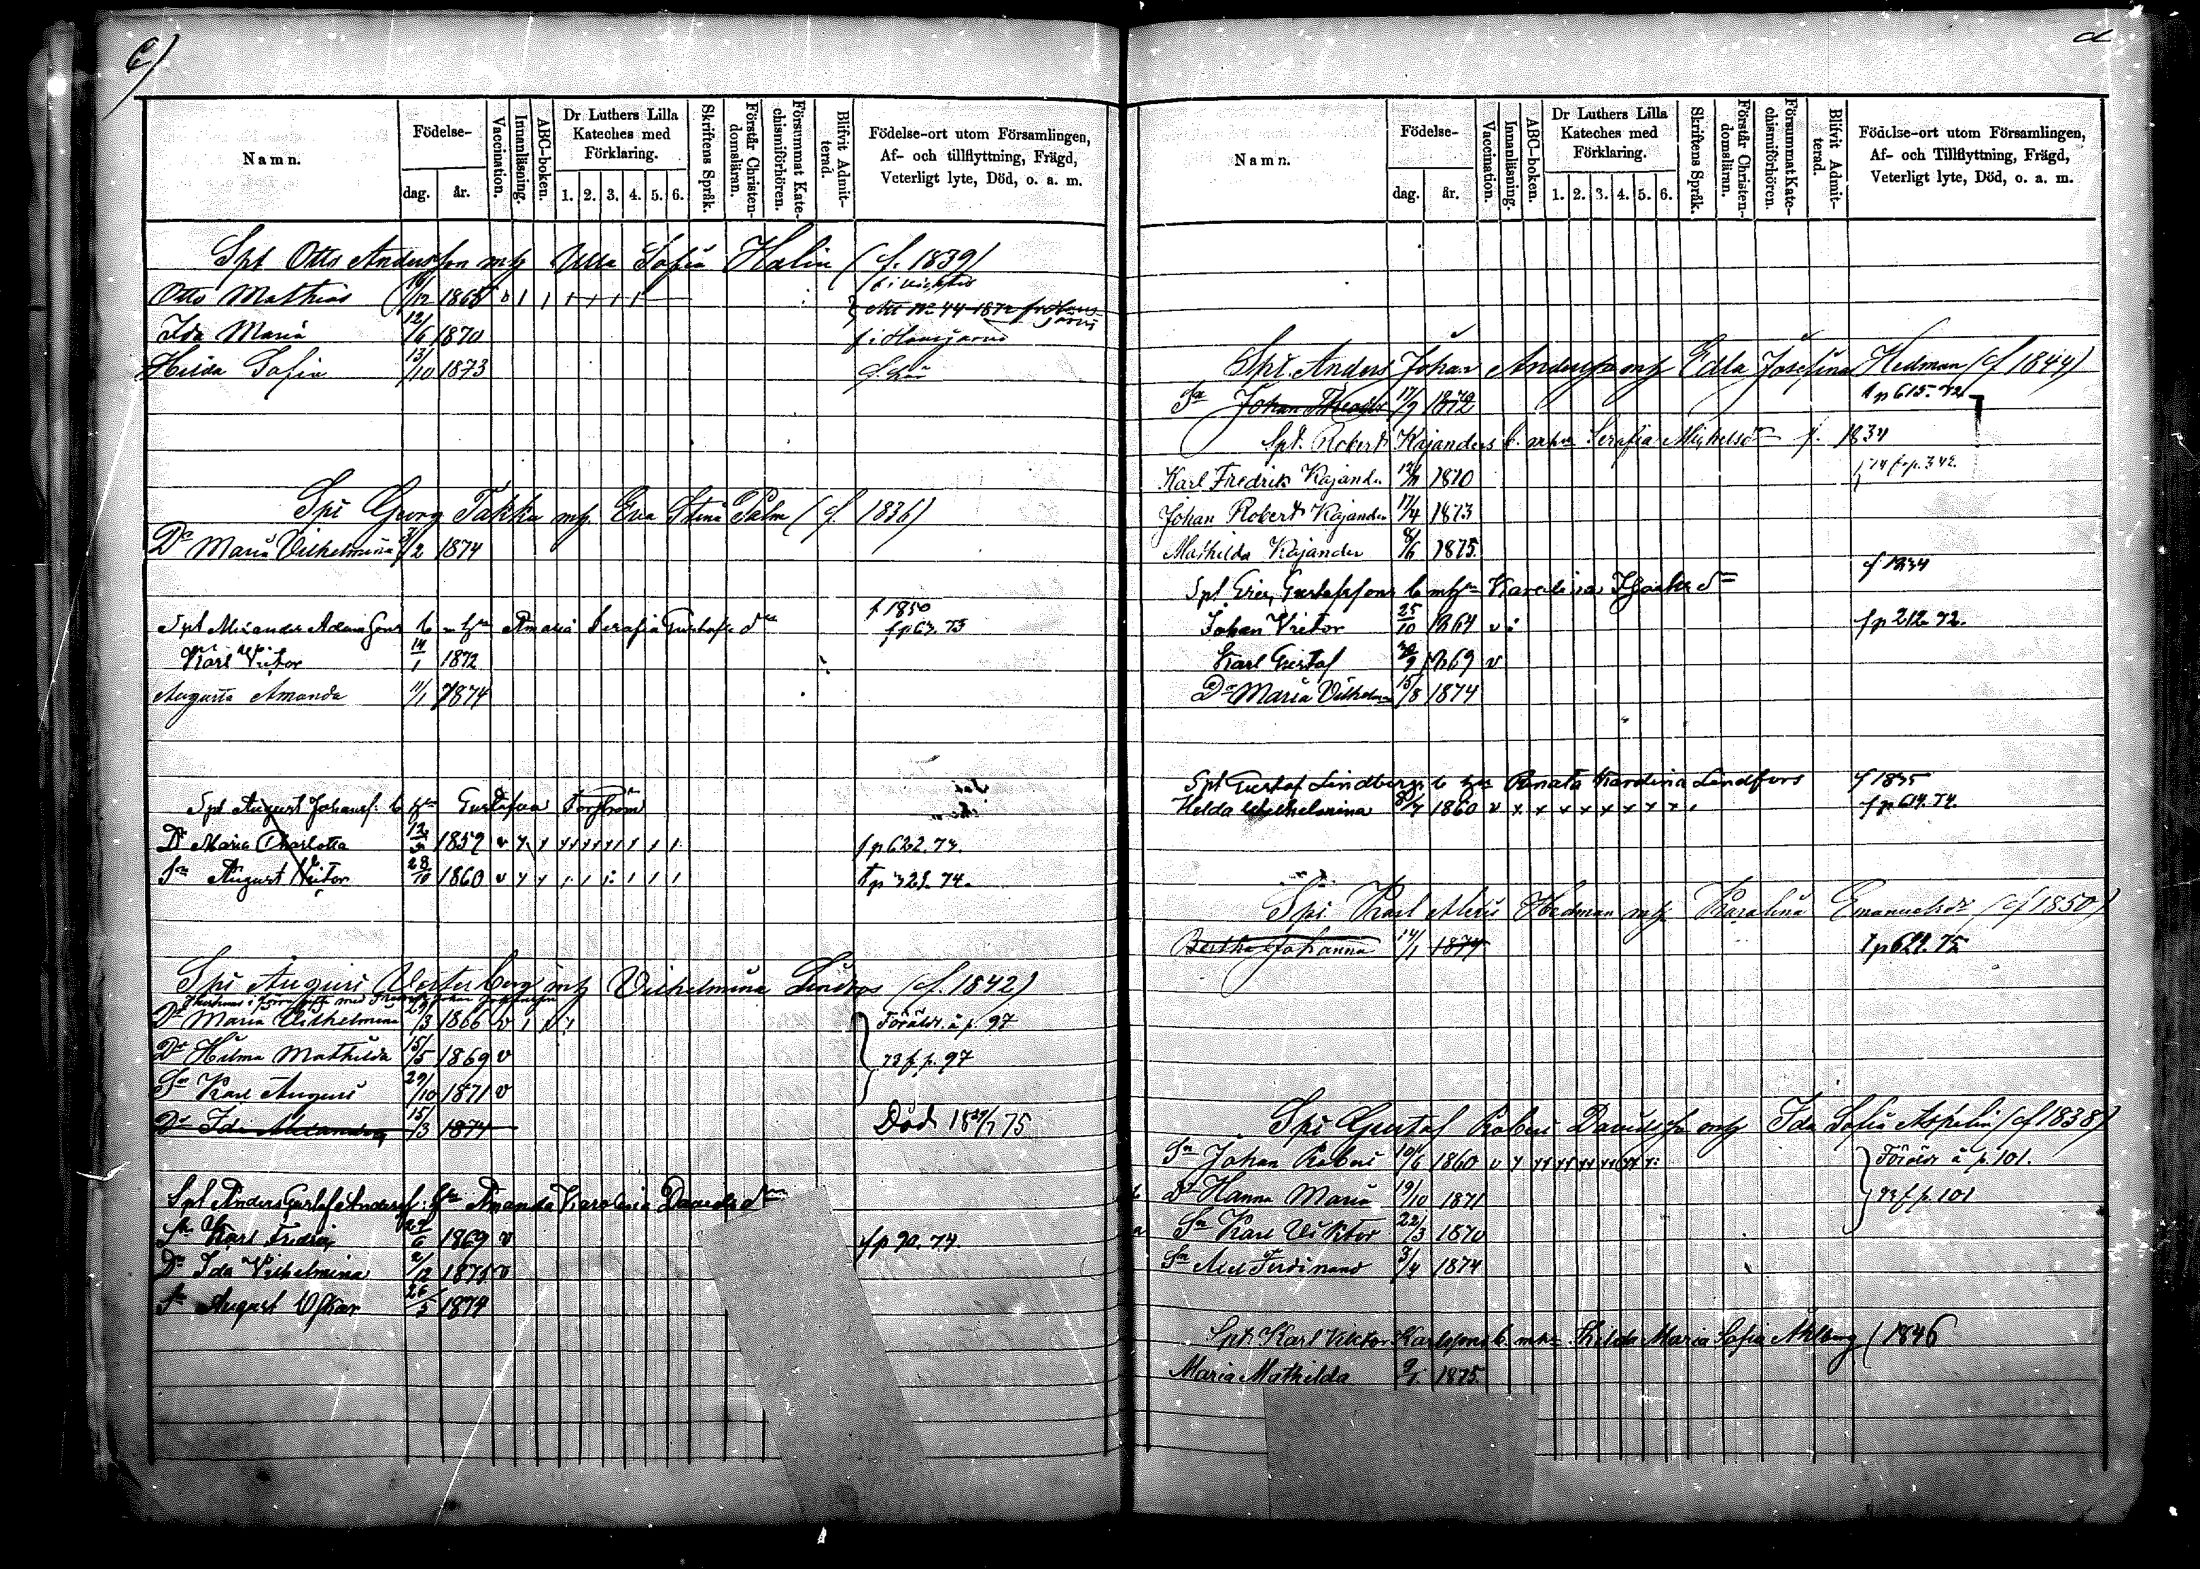 C)
Namn.
Födelse-
dag.
år.
Vaccination.
Innanläsning.
ABC-boken.
Dr Luthers Lilla Kateches med Förklaring.
1. 2. 3. 4. 5. 6.
Skriftens Språk.
Förstår Christendomsläran.
Försummat Katechismiförhören.
Blifvit Admitterad.
Födelse-ort utom Församlingen, Af- och tillflyttning, Frägd, Veterligt lyte, Död, o. a. m.
Spt Otto Andersson mh Ulla Sofia Halin (f. 1839)
Otto Mathias 12 1865
Ida Maria 12/6 1870
Hilda Sofia 13/10 1873
Spt Georg Takku mh Eva Stina Palm (f. 1836)
Dr Maria Vilhelmina /2 1874
Spt Alexander Adams Sons b Maria Serafia Gustafs dr f 1850
f p 63. 73
Karl Victor 14/1 1872
Augusta Amanda 11/1 1874
Spt August Johanss. b Gustafva Forsström
Dr Maria Charlotta 1859 f p 622. 73.
Sn August Victor 28/10 1860 74.
Spt August Westerberg mh Vilhelmina Lindros (f. 1842)
Dr Maria Vilhelmina /3 1866 v Föräldr. å p. 97
Dr Hilma Mathilda 15/5 1869 v 73 f. p. 97
Sn Karl August 29/10 1871 v
Dr Ida Alexandra 15/3 1874 Död 18 75
Spt Anders Gustaf Anderss. Amanda Karolina Davids dr
Sn Karl Fredrik 6 1869 v f p 90. 74.
Dr Ida Vilhelmina /12 v
Sn August Oskar 26/5 1874
d
Namn.
Födelse-
dag.
år.
Vaccination.
Innanläsning.
ABC-boken.
Dr Luthers Lilla Kateches med Förklaring.
1. 2. 3. 4. 5. 6.
Skriftens Språk.
Förstår Christendomsläran.
Försummat Katechismiförhören.
Blifvit Admitterad.
Födelse-ort utom Församlingen, Af- och Tillflyttning, Frägd, Veterligt lyte, Död, o. a. m.
Spt. Anders Johan Andersson mh Edla Josefina Hedman (f 1844)
Sn Johan 17/9 1872 p 615. 72
Spt. Robert Kajanders b. Serafia Mickelsdr f. 1834
Karl Fredrik Kajander 1870 p. 342.
Johan Robert Kajander 17/4 1873
Mathilda Kajander 8/6 1875.
Spt. Gustafssons b Karolina dr f 1834
Johan Victor 25/10 1864 v f p 212. 72.
Karl Gustaf /9 1869 v
Dr Maria Vilhelmina 15/8 1874
Spt Gustaf Lindbergs b Renata Karolina Lindfors f 1835
Hilda Wilhelmina 1860 v f p 614. 74.
Spt Karl Alexis Hedman mh Karolina Emanuelsdr (f 1850)
Bertha Johanna 14/1 1874 p 622. 75
Spt Gustaf Robert Davidsson mh Ida Sofia Aspelin (f 1838)
Sn Johan Robert 10/6 1860 v Föräldr å p. 101.
Dr Hanna Maria 19/10 1871 73 f. p. 101
Sn Karl Viktor 22/3 1870
Sn Axel Ferdinand 3/4 1874
Spt. Karl Viktor Karlssons b. Hilda Maria Sofia Ahlberg f 1846
Maria Mathilda 1875.